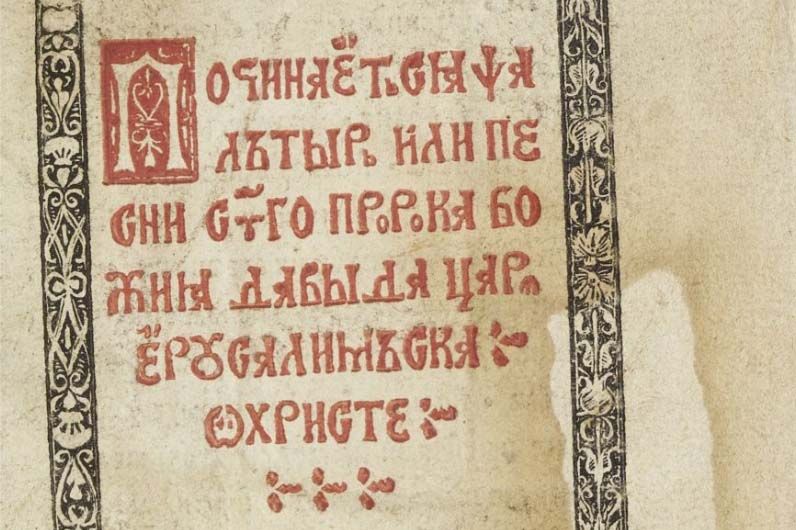 Починаеть сꙗ ѱа
лътырь или пе
сни ст҃го пророка бо
жиꙗ давыда царꙗ
ерꙋсалимъска
ѡ христе